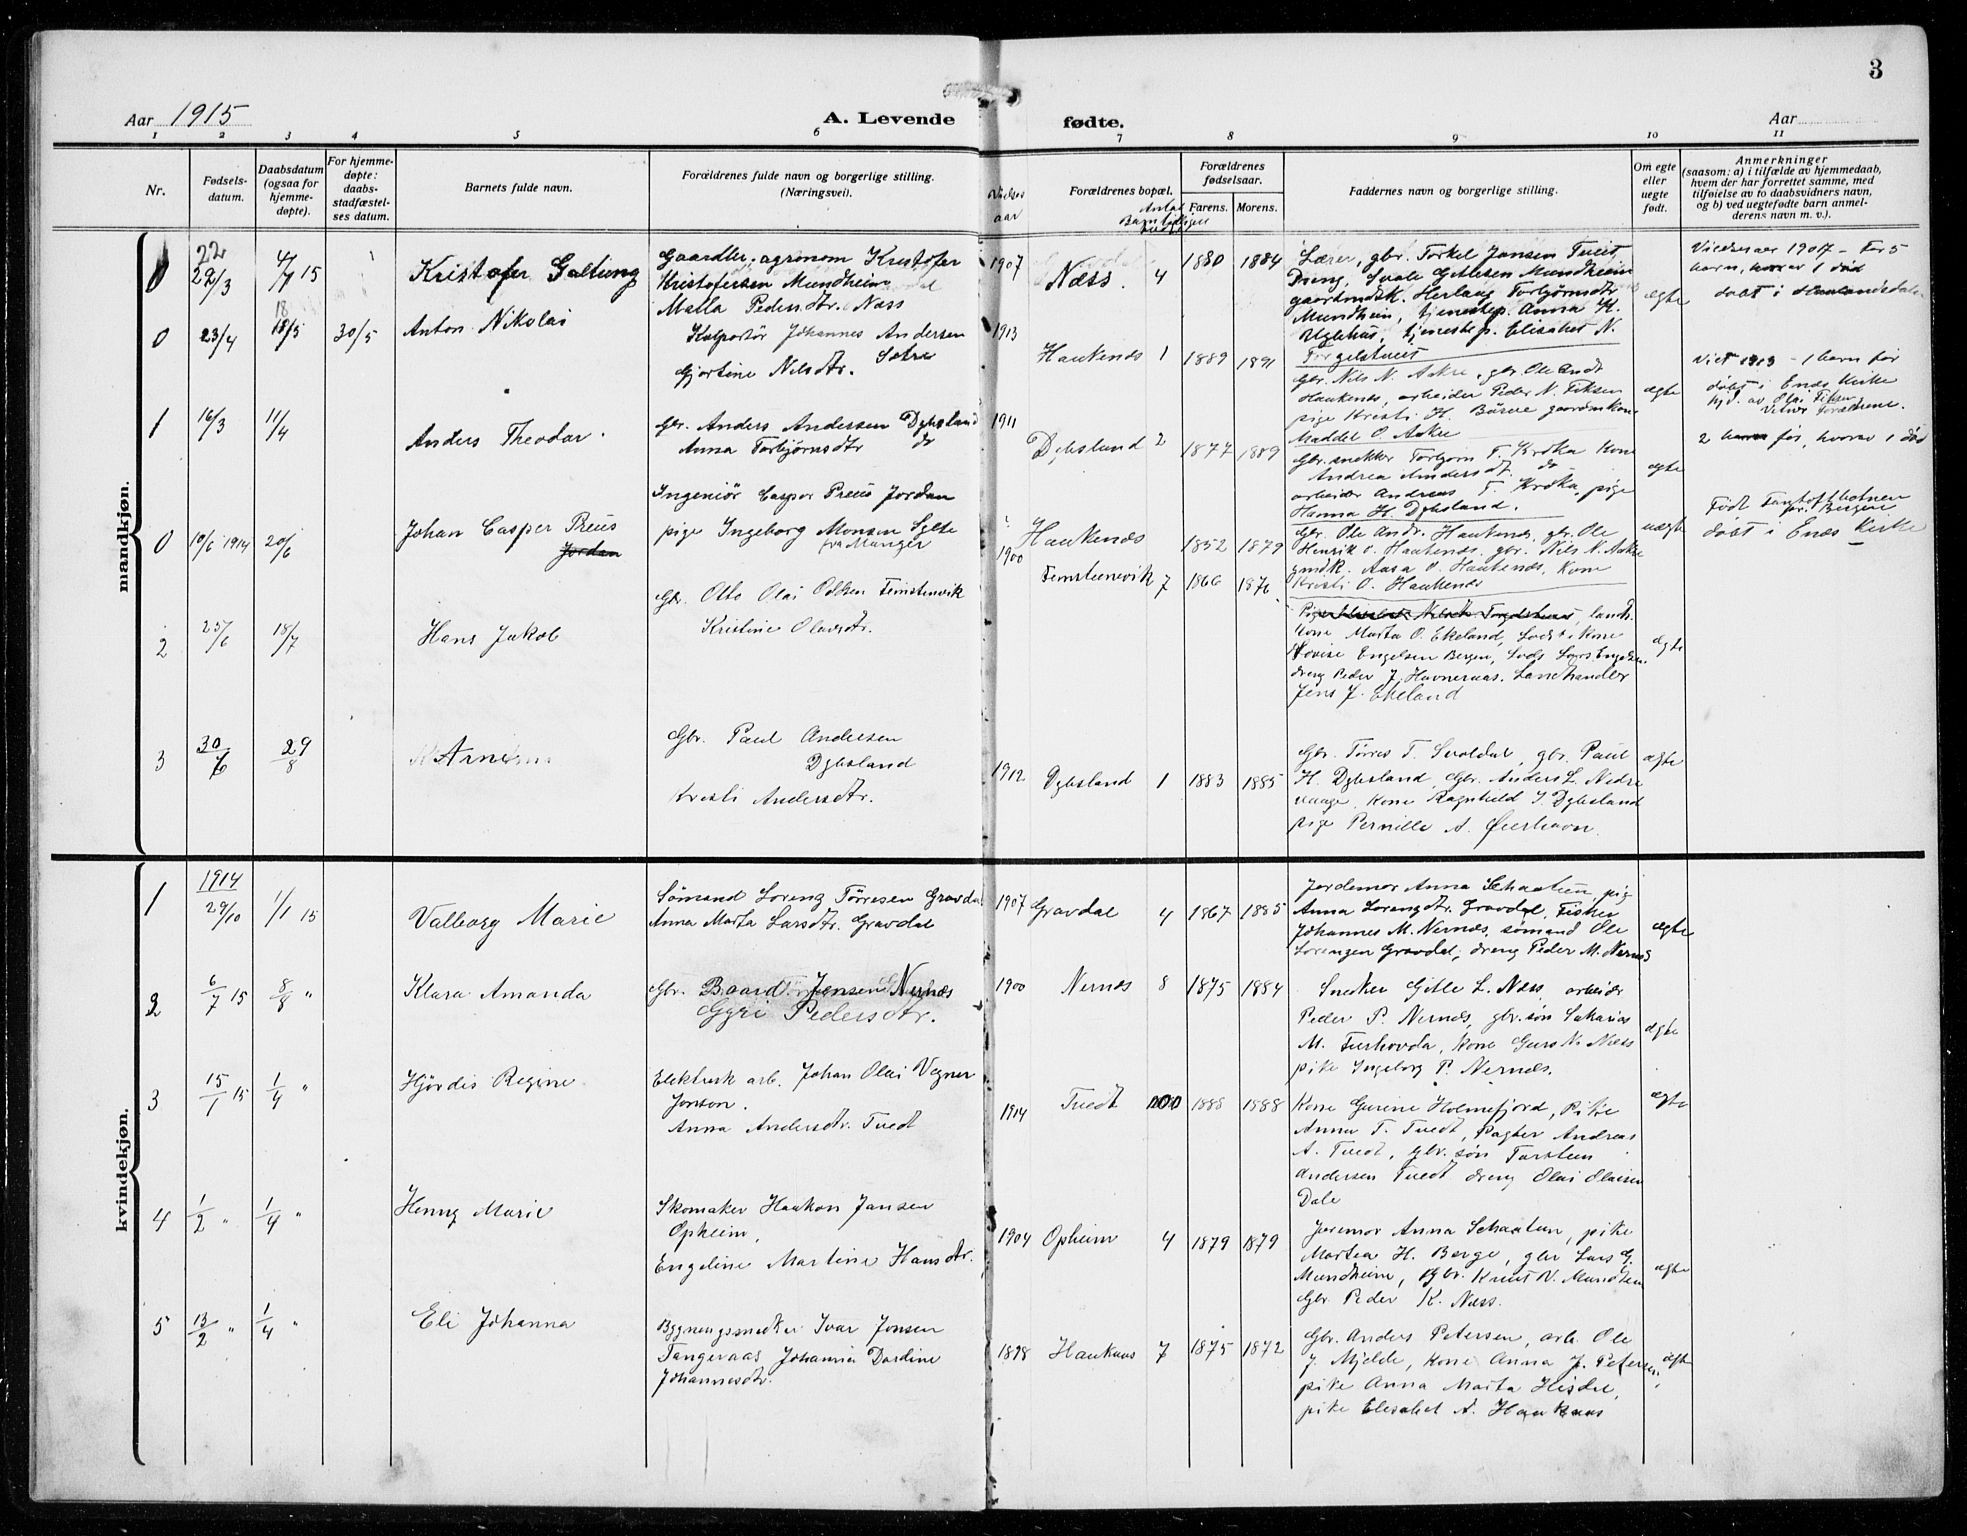 3
Aar 1915
A. Levende fødte.
Aar
1 2 3 4 5 6 7 8 9 10 11
Nr.
Fødsels-
datum.
Daabsdatum
(ogsaa for
hjemme-
døpte).
For hjemme-
døpte:
daabs-
stadfæstel-
ses datum.
Barnets fulde navn.
Forældrenes fulde navn og borgerlige stilling.
(Næringsvei).
aar
Forældrenes bopæl.
Antal
Forældrenes
fødselsaar.
Farens. Morens.
Faddernes navn og borgerlige stilling.
Om egte
eller
uegte
født.
Anmerkninger
(saasom: a) i tilfælde av hjemmedaab,
hvem der har forrettet samme, med
tilføielse av to daabsvidners navn,
og b) ved uegtefødte barn anmel-
derens navn m. v.).
mandkjøn.
0 22/3 4/7 15
Kristofer Galtung
Gaardbr. agronom Kristofer
Kristofersen Mundheim
Malla Pedersdtr. Næss
1907 Næss 4 1880 1884
Lærer, gbr. Torkel Jansen Tuet
Dreng, Gitlesen Mundheim
Herlaug Torbjørnsdtr
Mundheim, tjenestep. Anna H.
tjenestep. Elisabet N.
Torgelstueit
ægte
Vielsesaar 1907 - Før 5
barn, hvorav 1 død
døbt i
0 23/4 18/5 30/5
Anton Nikolai
Kolportør Johannes Andersen
Sætre
Gjertine Nilsdtr.
1913 Haukenæs 1 1889 1891
Gbr. Nils N. Aakre, gbr. Ole
Haukenæs, arbeider Peder N. Fiksen
pige Kristi H. Børve gaardmkone
Maddel O. Aakre
ægte
Viet 1913 - 1 barn før
døbt i Enæs Kirke
hjd. av Olai Fiksen
1 16/3 11/4
Anders Theodor.
Gbr. Anders Andersen Dybsland
Anna Torbjørnsdtr do
1911 Dybsland 2 1877 1889
Gbr. snekker Torbjørn T. Kroka Kone
Andrea Andersdt. do
arbeider Andreas T. Kroka, pige
Hanna H. Dybsland.
ægte
2 barn før, hvorav 1 død
0 10/6 1914 20/6
Johan Casper Preus
Jordan
Ingeniør Casper Preus Jordan
pige Ingeborg Monsen Sylte
fra Manger
Haukenæs 1852 1879
Gbr. Ole Andr. Haukenæs, gbr. Ole
Henrik O. Haukenæs, gbr. Nils N. Aakre
gmdk. Aasa O. Haukenæs, Kone
Kristi O. Haukenæs
uægte
Født Fantoftbotnen
pr. Bergen
døbt i Enæs Kirke
2 25/6 18/7
Hans Jakob
Gbr. Otto Olai Olsen Femstenevik
Kristine Olavsdtr.
1900 Femstenevik 7 1866 1876
Kone Marta O. Ekeland, Lods
Lovise Engelsen Bergen, Lods Lars Engelsen.
dreng Peder J. Havnernaas. Landhandler
Jens J. Ekeland
ægte
3 30/6 29/8
Arne
Gbr. Paul Andersen
Dybsland
Kristi Andersdtr.
1912 Dybsland 1 1883 1885
Gbr. Tørres T. Svoldal, gbr. Paul
H. Dybsland, Gbr. Anders L. Nedre
vaage, Kone Ragnhild J. Dybsland
pige Pernille A. Øierhavn.
ægte
kvindekjøn.
1 1914 29/10 1/1 15
Valborg Marie
Sømand Loreng Tørresen Gravdal
Anna Marta Larsdtr. Gravdal
1907 Gravdal 4 1867 1885
Jordemor Anna Schaatun, pig
Anna Lorengdtr. Gravdal, Fisker
Johannes M. Nernæs, sømand Ole
Lorengen Gravdal, dreng Peder M. Nernæs
ægte
2 6/7 15 8/8 "
Klara Amanda
Gbr. Baard Jensen Nernæs
Gyri Pedersdtr.
1900 Nernæs 8 1875 1884
Snekker Gitle L. Næss, arbeider
Peder P. Nernæs, gbr. søn Sakarias
M. Furhovda, Kone Guro N. Næss
pike Ingeborg P. Nernæs.
ægte
3 15/1 15 1/4 "
Hjørdis Regine
Elektrisk arb. Johan Olai Vegner
Jonson.
Anna Andersdtr. Tuedt
1914 Tuedt 0 1888 1888
Kone Gurine Holmefjord, Pike
Anna T. Tuedt, Pagter Andreas
A. Tuedt, gbr. søn Torstein
Andersen Tuedt dreng Olai Olaisen
Dale
ægte
4 1/2 " 1/4 "
Henny Marie
Skomaker Haakon Jansen
Opheim,
Engeline Martine Hansdtr.
1904 Opheim 4 1879 1879
Joremor Anna Schaatun, pike
Martea H. Berge, gbr Lars G.
Mundheim, Gbr. Knut N. Mundheim
Gbr Peder K. Næss.
ægte
5 13/2 " 1/4 "
Eli Johanna
Bygningssnedker Ivar Jonsen
Tangeraas Johanna Dordine
Johannesdtr.
1898 Haukaas 7 1875 1872
Gbr. Anders Petersen, arb. Ole
J. Mjelde, Kone Anna J. Petersen,
pike Anna Marta Hisdal,
pike Elisabet A. Haukaas
ægte